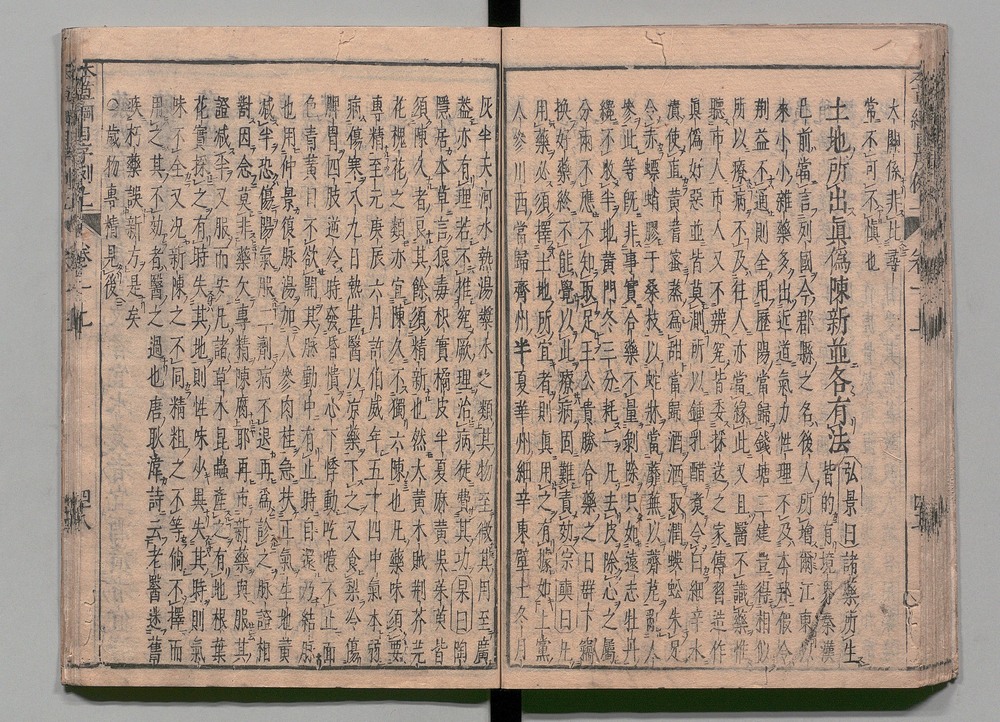 大關係非比尋
常不可不慎也
土地所出眞偽陳新並各有法
弘景曰諸藥所生
皆的有境界秦漢
已前當言列國今郡縣之名後人所增爾江東以
來小小雜藥多出近道氣力性理不及本邦假令
荆益不通則全用歷陽當歸錢塘三建豈得相似
所以療病不及往人亦當緣此又且醫不識藥惟
聽市人市人又不辨究皆委採送之家傳習造作
眞偽好惡並皆莫測所以鍾乳醋煮令白細辛水
漬使直黃耆蜜蒸爲甜當歸酒洒取潤蜈蚣朱足
令赤螵蛸膠于桑枝以蛇牀當蘼蕪以薺苨亂人
參此等既非事實合藥不量剝除只如遠志牡丹
纔不收半地黃門冬三分耗一凡去皮除心之屬
分兩不應不知取足王公貴勝合藥之日群下竊
換好藥終不能覺以此療病固難責效宗奭曰凡
用藥必須擇土地所宜者則眞用之有據如上黨
人參川西當歸齊州半夏華州細辛東壁土冬月
灰半天河水熱湯漿水之類其物至微其用至廣
蓋亦有理若不推究厥理治病徒費其功杲曰陶
隱居本草言狼毒枳實橘皮半夏麻黃吳茱萸皆
須陳久者良其餘須精新也然大黃木賊荆芥芫
花槐花之類亦宜陳久不獨六陳也凡藥味須要
專精至元庚辰六月許伯威年五十四中氣本弱
病傷寒八九日熱甚醫以涼藥下之又食梨冷傷
脾胃四肢逆冷時發昏憒心下悸動吃噫不止面
色青黃目不欲開其脉動中有止時自還乃結脉
也用仲景復脉湯加人參肉桂急扶正氣生地黃
減半恐傷陽氣服一劑病不退再爲診之脉證相
對因念莫非藥欠專精陳腐耶再市新藥與服其
證減半又服而安凡諸草木昆蟲產之有地根葉
花實採之有時失其地則性味少異失其時則氣
味不全又况新陳之不同精粗之不等倘不擇而
用之其不効者醫之過也唐耿湋詩云老醫迷舊
疾朽藥誤新方是矣
○歲物專精見後